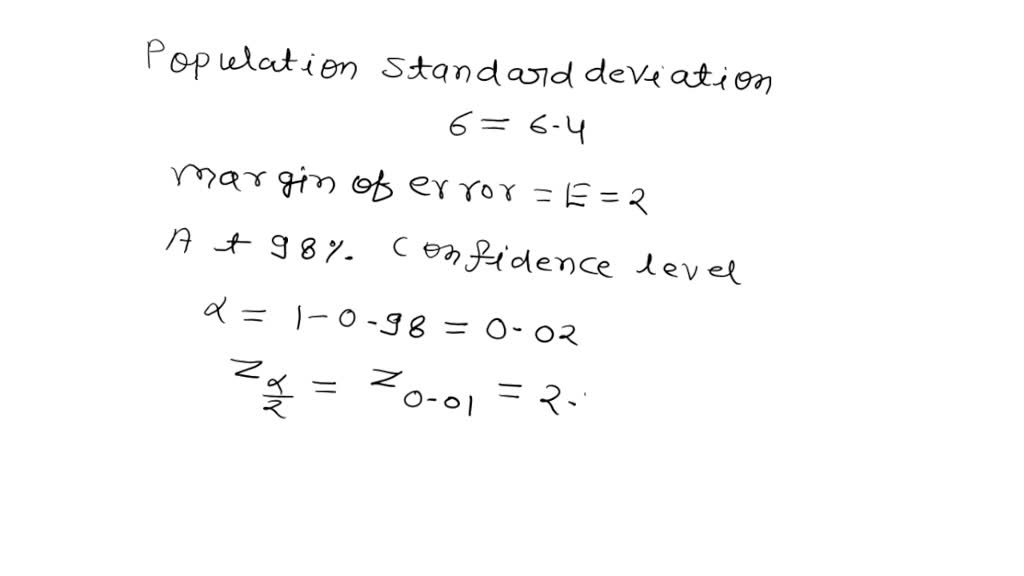 Population standard deviation
6 = 6.4
margin of error = E = 2
At 98%. Confidence level
α = 1-0.98 = 0.02
Zα/2 = Z0.01 = 2.